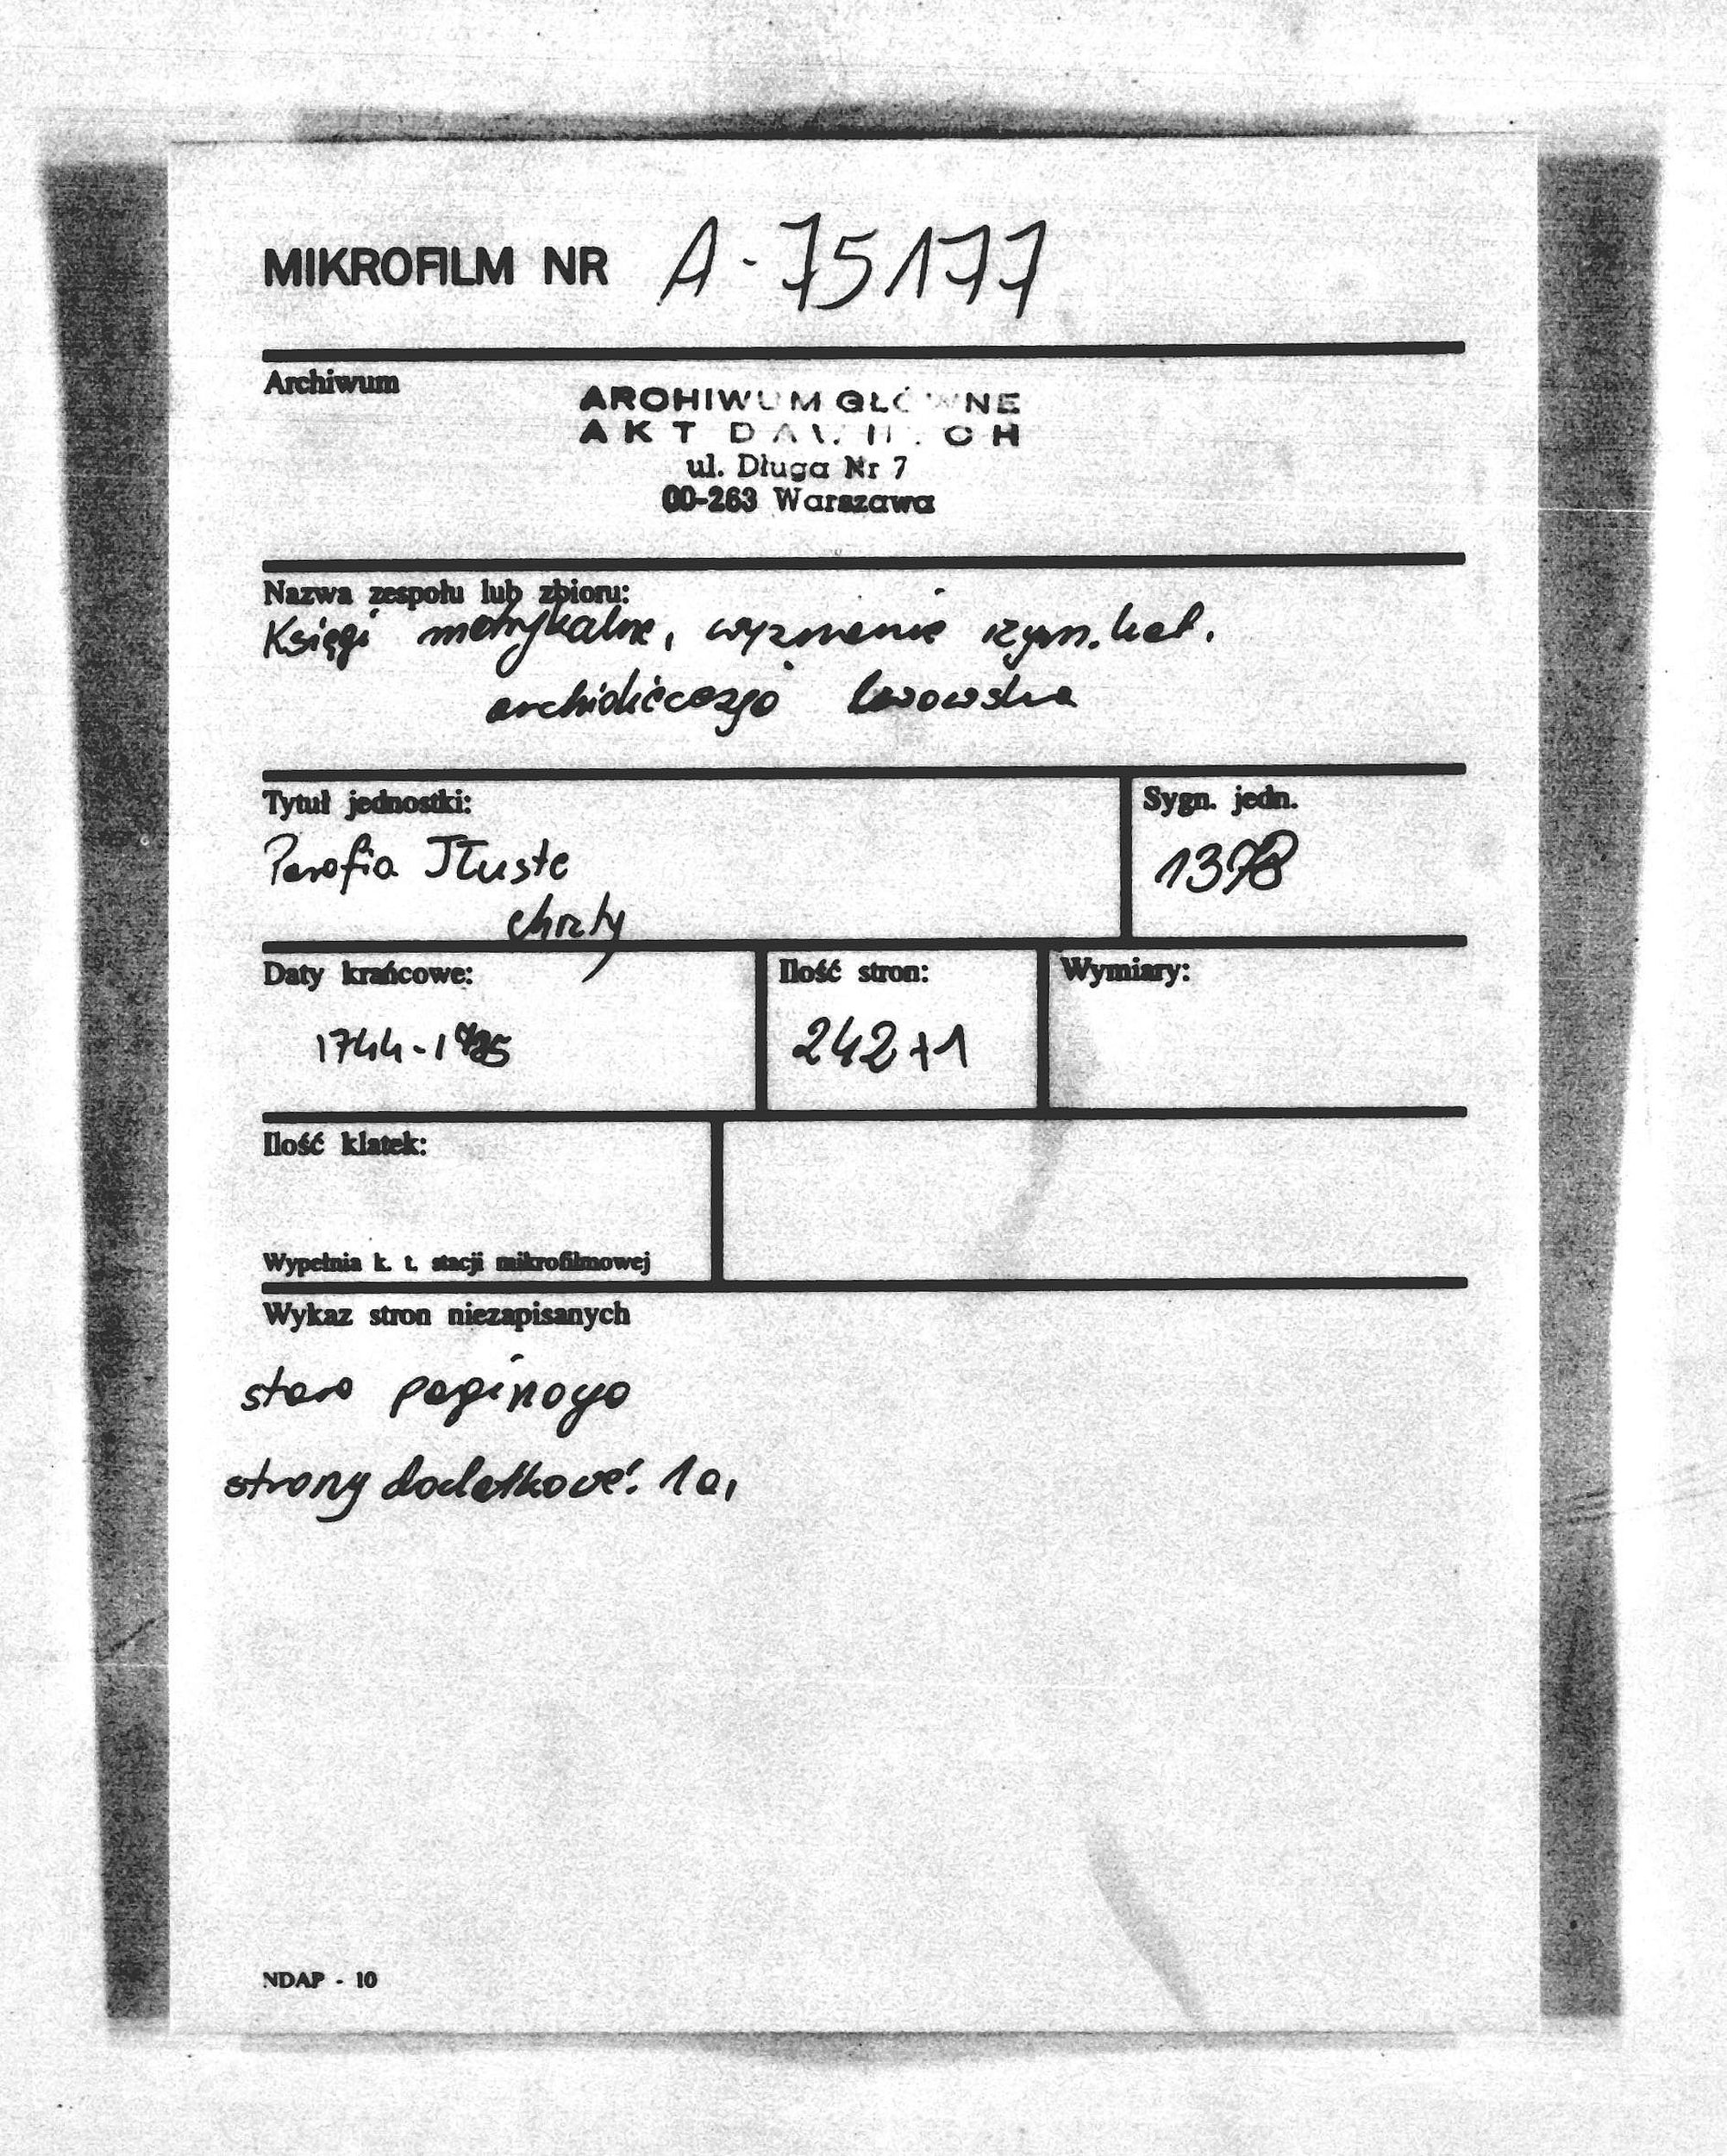 MIKROFILM NR A-75177
Archiwum
ARCHIWUM GŁÓWNE
AKT DAWNYCH
ul. Długa Nr 7
00-263 Warszawa
Nazwa zespołu lub zbioru:
Księgi metrykalne, wyznanie rzym. kat.
archidiecezja lwowska
Tytuł jednostki:
Sygn. jedn.
Parafia Tłuste
1378
chrzty
Daty krańcowe:
Ilość stron:
Wymiary:
1744-
242+1
Ilość klatek:
Wypełnia k. t. stacji mikrofilmowej
Wykaz stron niezapisanych
stara paginacja
strony dodatkowe: 1a,
NDAP - 10